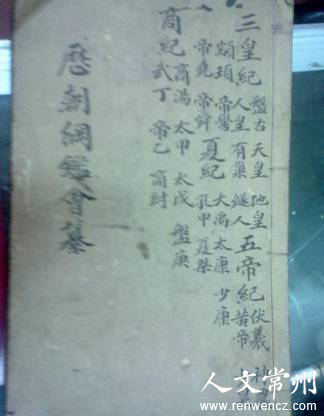 三皇紀
盤古 天皇 地皇
人皇 有巢 燧人
五帝紀
伏羲
黃帝
顓頊 帝嚳
帝堯 帝舜
夏紀
大禹 太康 少康
孔甲 夏桀
商紀
商湯 太甲 太戊 盤庚
武丁 帝乙 商紂
歷朝綱鑑會纂
人文常州
www.renwencz.com